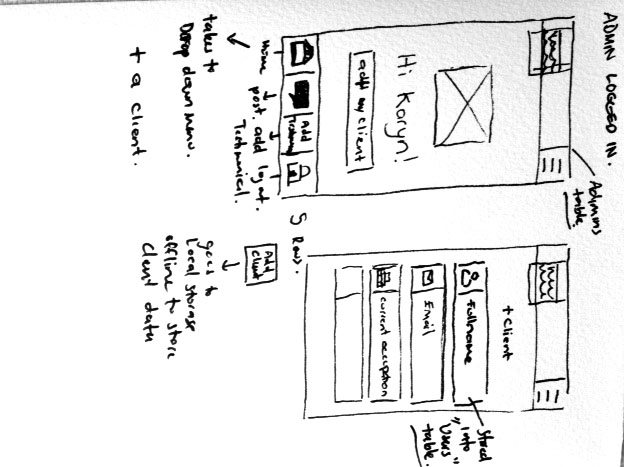 ADMIN LOGGED IN.
Admins
table.
Hi Koryn!
add my client
Add
Home
post.
add
Testimonial.
logout.
takes to
Drop down menu.
+ a client.
+ client
Fullname
Email
current occupation
Stored
into
"Users"
table.
5
Rows.
Add
client
goes to
Local storage
offline to store
client data